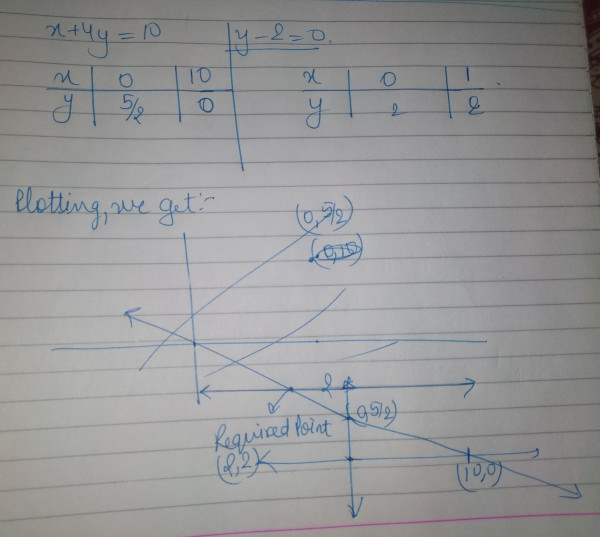 x+4y=10
y-2=0.
x 0 10
y 5/2 0
x 0 1
y 2 2
Plotting, we get:-
(0,5/2)
2
(0,5/2)
Required Point
(2,2)
(10,0)